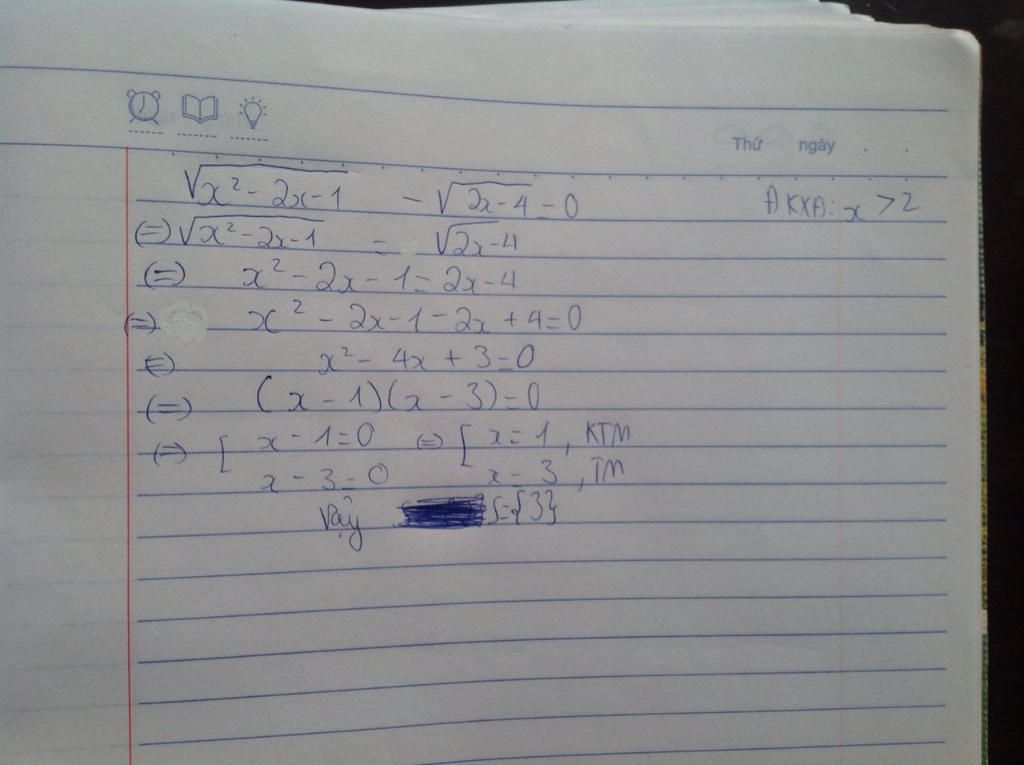 Thứ ngày
√x² - 2x - 1 - √2x - 4 = 0 ĐKXĐ: x > 2
(=) √x² - 2x - 1 = √2x - 4
(=) x² - 2x - 1 = 2x - 4
(=) x² - 2x - 1 - 2x + 4 = 0
(=) x² - 4x + 3 = 0
(=) (x - 1)(x - 3) = 0
(=) [ x - 1 = 0 (=) [ x = 1, KTM
x - 3 = 0 x = 3, TM
Vậy S = {3}